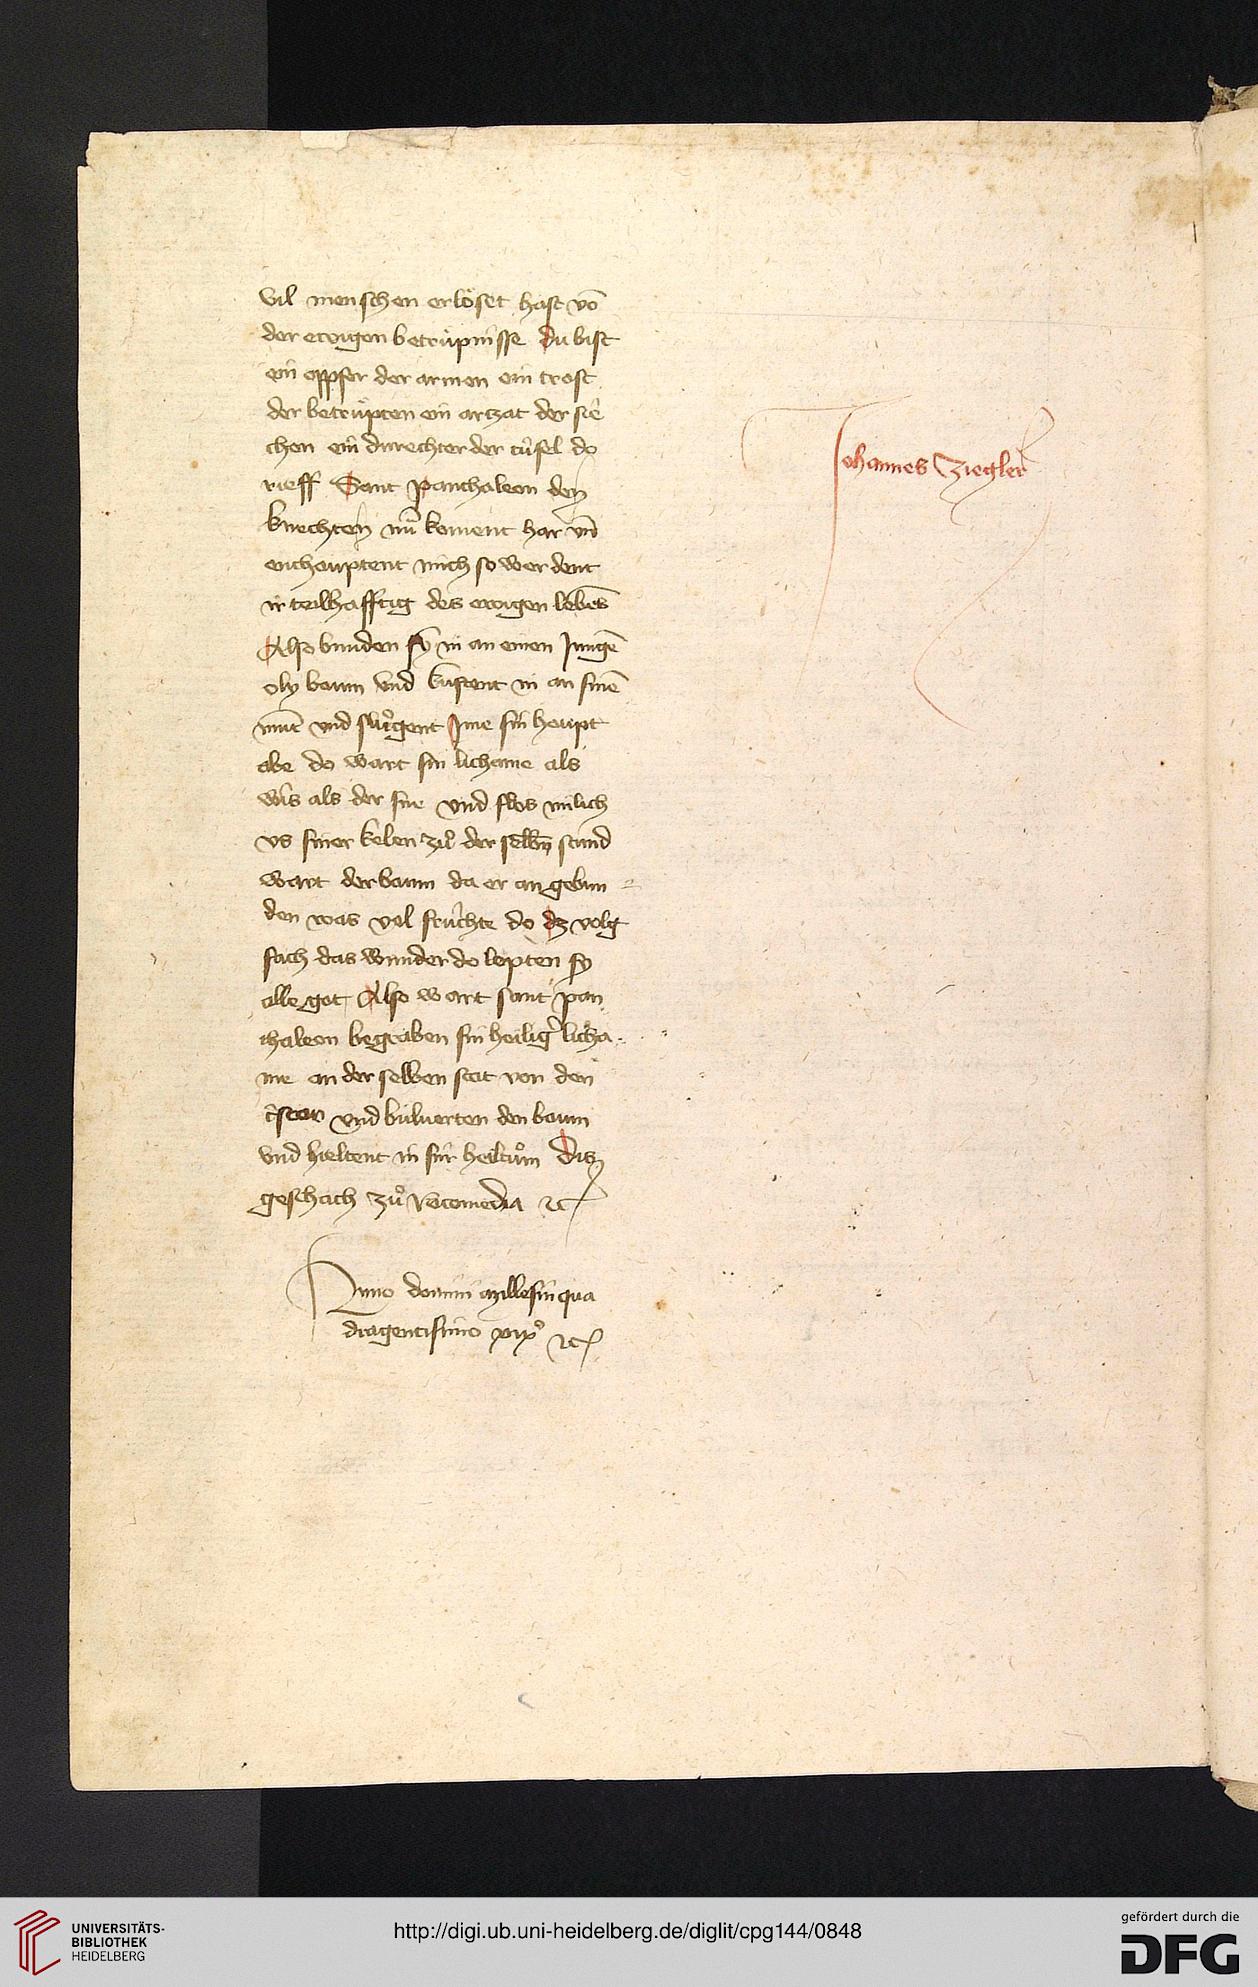 vil menschen erlöset hast vō
der ewigen betrüpnisse du bist
ein opfer der armen ein trost
der betrüpten ein artzat der sie
chen ein durechter der tüfel do
rieff Sant panthaleon den
knechten nū koment har vn̄
enthouptent mich so werdent
ir teilhafftig des ewigen lebēs
Also bunden sy in an einen Jungē
oly boum vnd kustent in an sinē
munt vnd slůgent Ime sin houpt
abe do wart sin lichame als
wis als der sne vnd flos milich
vs siner kelen zů der selbn̄ stund
wart der boum da er an gebun
den was vol früchte do dz volg
sach das wunder do lepten sy
alle got Also wart sant pan
thaleon begraben sin heilig̾ licha
me an der selben stat von den
vnd bulverten den boum
vnd hieltent in für heiltům Dis
geschach zů Nicomedia ꝛc
Anno domini millesin qua
dragentisimo xix° ꝛc
Johannes Ziegler
UNIVERSITÄTS-
BIBLIOTHEK
HEIDELBERG
http://digi.ub.uni-heidelberg.de/diglit/cpg144/0848
gefördert durch die
DFG